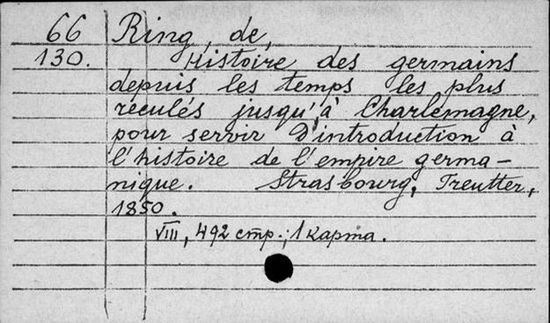 66 Ring, de,
130. Histoire des germains
depuis les temps les plus
reculés jusqu'à Charlemagne,
pour servir d'introduction à
l'histoire de l'empire germa-
nique. Strasbourg, Treutter,
1850.
VIII, 492 стр.; 1 карта.